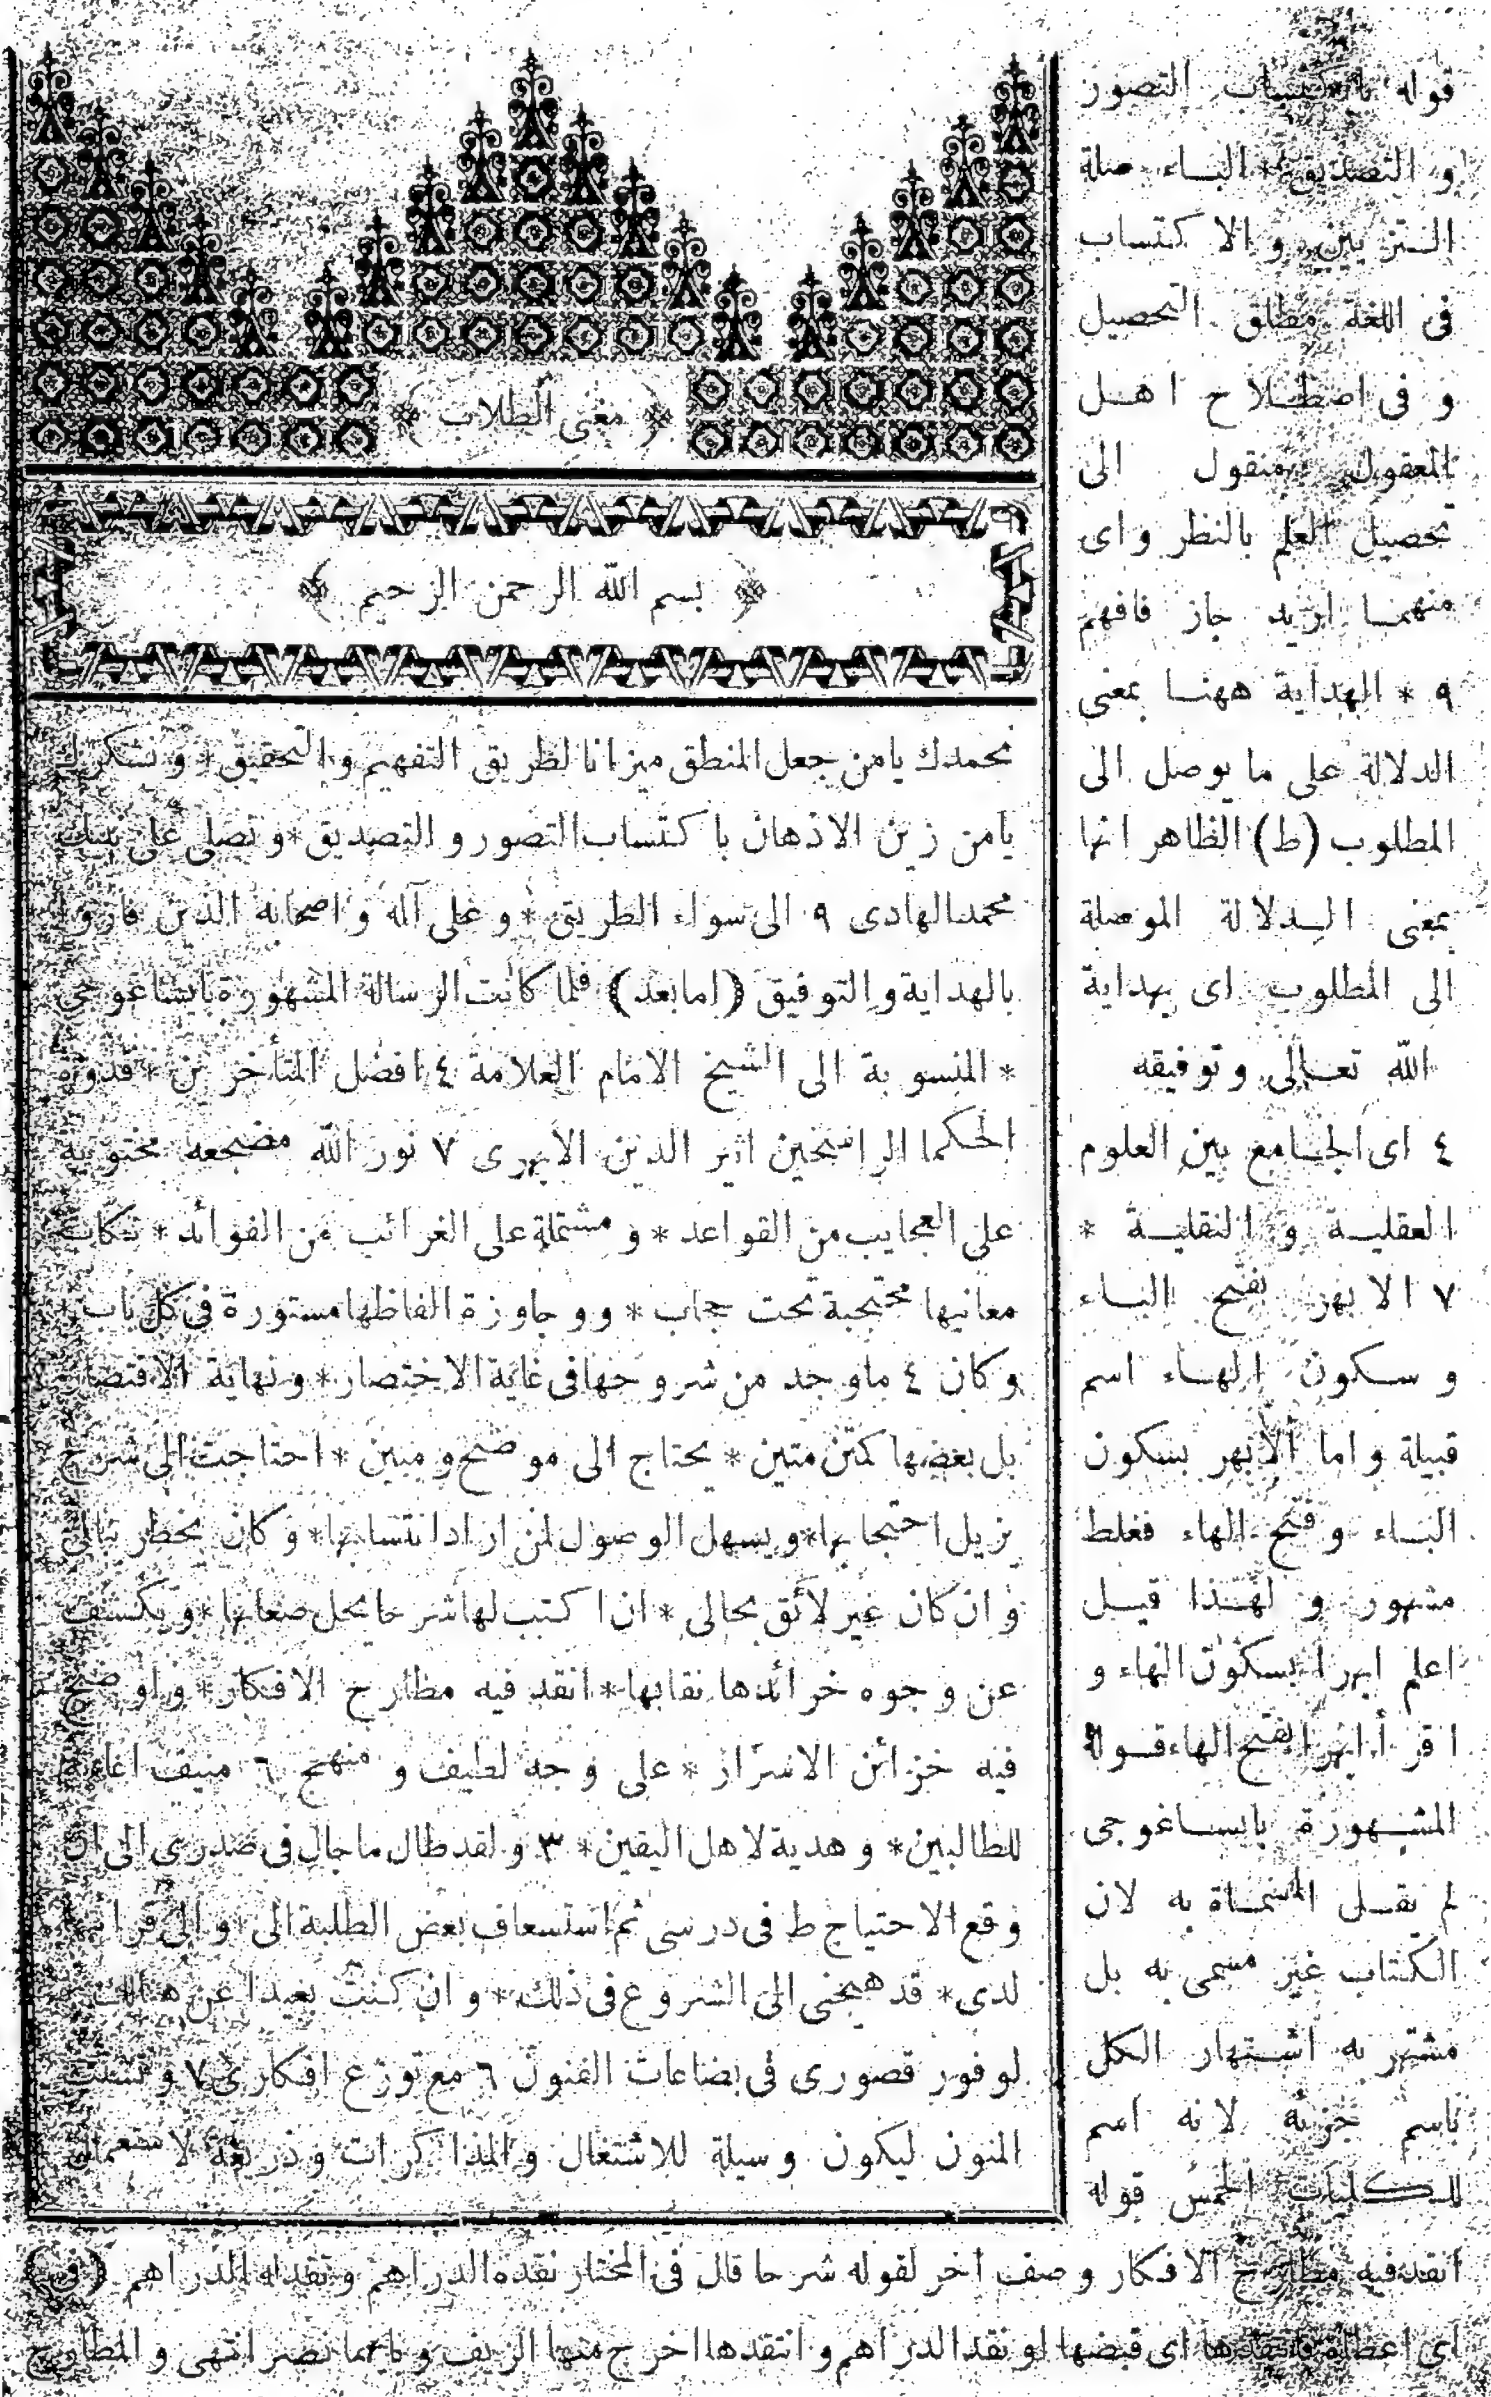 ﴿ مغنى الطلاب ﴾
﴿ بسم الله الرحمن الرحيم ﴾
نحمدك يامن جعل المنطق ميزانا لطريق التفهيم والتحقيق * ونشكرك
يامن زين الاذهان باكتساب التصور والتصديق * ونصلى على نبيك
محمد الهادى ٩ الى سواء الطريق * وعلى آله واصحابه الذين فازوا
بالهداية والتوفيق (امابعد) فلما كانت الرسالة المشهورة بايساغوجى
* المنسوبة الى الشيخ الامام العلامة ٤ افضل المتأخرين * قدوة
الحكما الراسخين اثير الدين الابهرى ٧ نور الله مضجعه محتوية
على العجايب من القواعد * ومشتملة على الغرائب من الفوائد * تكاد
معانيها محتجبة تحت حجاب * ووجاوزة الفاظها مستورة فى كل باب *
وكان ٤ ماوجد من شروحها فى غاية الاختصار * ونهاية الاقتصا
بل بعضها كمتن متين * يحتاج الى موضح ومبين * احتاجت الى شرح
يزيل احتجابها * ويسهل الوصول لمن اراد انتسابها * وكان يخطر ببالى
وان كان غير لائق بحالى * ان اكتب لها شرحا يحل صعابها * ويكشف
عن وجوه خرائدها نقابها * انقد فيه مطارح الافكار * واوضح
فيه خزائن الاسرار * على وجه لطيف ومنهج ٦ منيف
للطالبين * وهدية لاهل اليقين * ٣ ولقد طال ماجال فى صدرى الى ان
وقع الاحتياج ط فى درسى ثم استسعاف بعض الطلبة الى
لدى * قد هيجنى الى الشروع فى ذلك * وان كنت بعيدا عن هنالك *
لوفور قصورى فى بضاعات الفنون ٦ مع توزع افكارى ٧ وتشتت
المنون ليكون وسيلة للاشتغال والمذاكرات وذريعة لاستعمال
قوله باكتساب التصور
والتصديق * الباء صلة
التزيين والاكتساب
فى اللغة مطلق التحصيل
وفى اصطلاح اهل
المعقول منقول الى
تحصيل العلم بالنظر واى
منهما اريد جاز فافهم
٩ * الهداية ههنا بمعنى
الدلالة على ما يوصل الى
المطلوب (ط) الظاهر انها
بمعنى الدلالة الموصلة
الى المطلوب اى بهداية
الله تعالى وتوفيقه
٤ اى الجامع بين العلوم
العقلية والنقلية *
٧ الابهر بفتح الباء
وسكون الهاء اسم
قبيلة واما الابهر بسكون
الباء وفتح الهاء فغلط
مشهور ولهذا قيل
اعلم ابهرا بسكون الهاء و
اقرأ ابهرا بفتح الهاء قوله
المشهورة بايساغوجى
لم يقل المسماة به لان
الكتاب غير مسمى به بل
مشتهر به اشتهار الكل
باسم جزئه لانه اسم
للكليات الخمس قوله
انقد فيه مطارح الافكار وصف اخر لقوله شرحا قال فى المختار نقده الدراهم ونقد له الدراهم (فى)
اى اعطاه فانتقدها اى قبضها ونقد الدراهم وانتقدها اخرج منها الزيف وبابهما نصر انتهى والمطارح